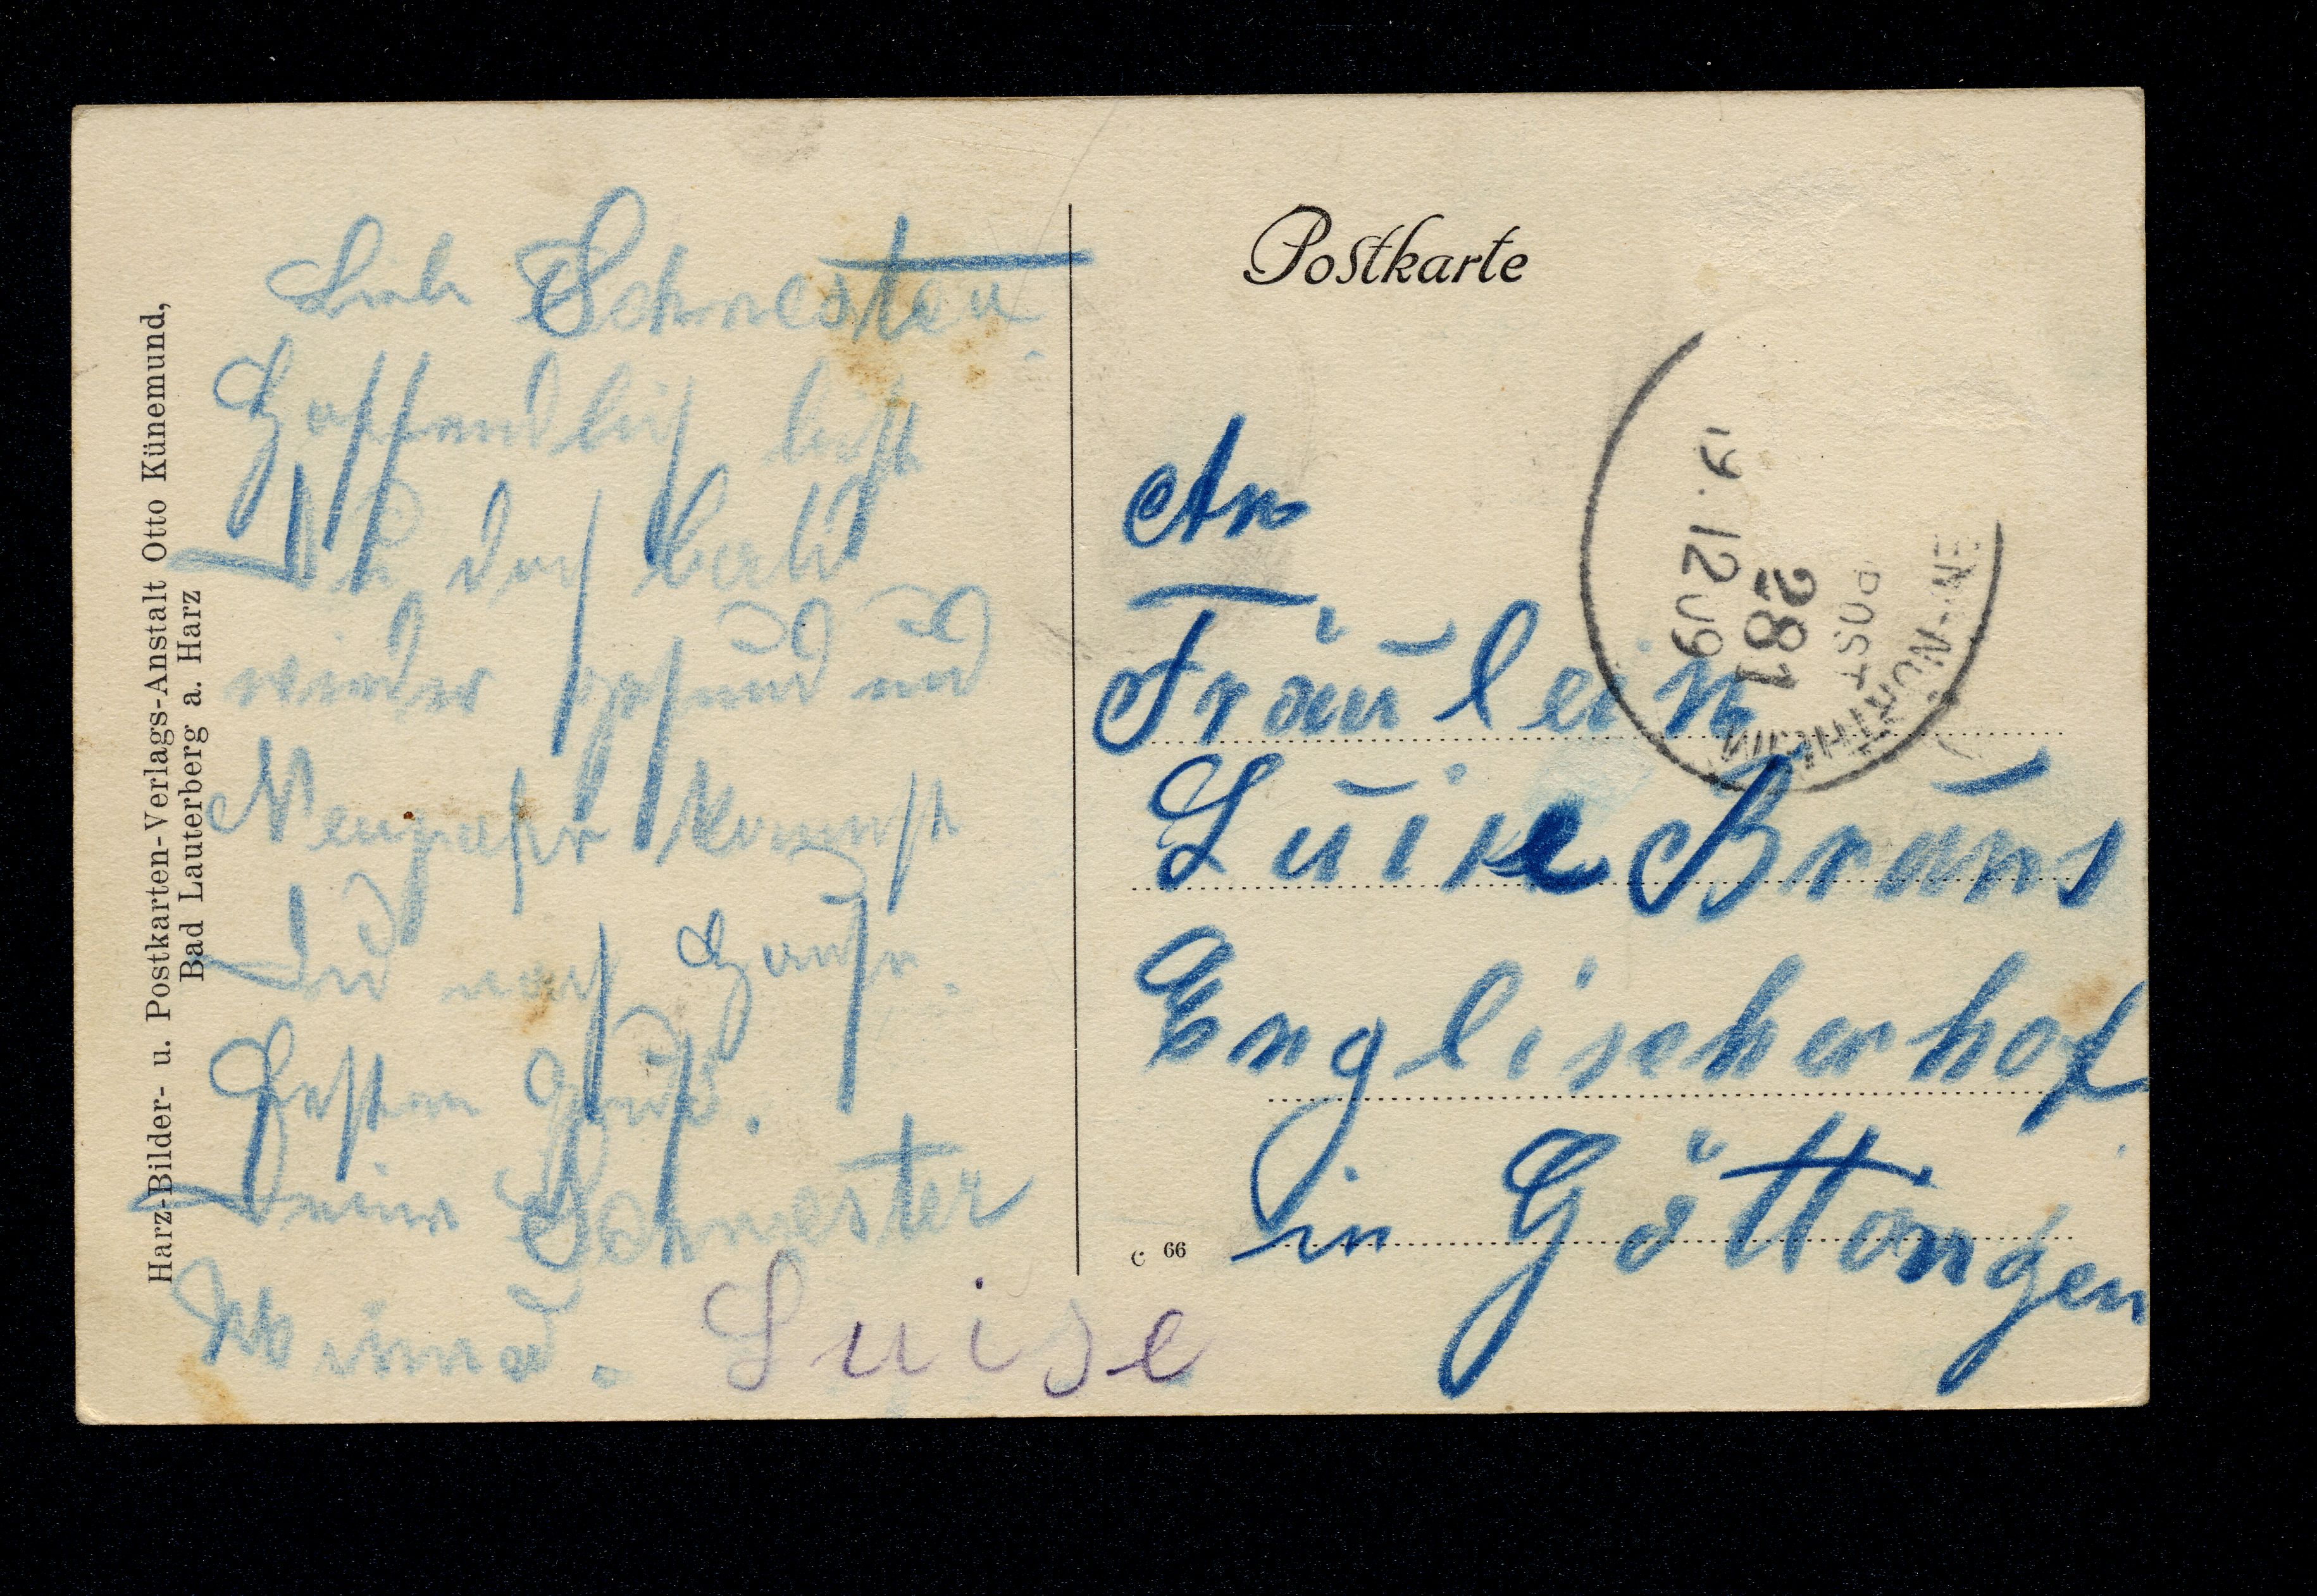 Liebe Schwester
Hoffendlich bist
Du doch bald
wieder gesund und
Neujahr kommst
Du nach Hause.
Besten Gruß.
Deine Schwester
Minna. Luise
Harz-Bilder- u. Postkarten-Verlags-Anstalt Otto Künemund,
Bad Lauterberg a. Harz
Postkarte
An
Fräulein
Luise Bruns
Englischerhof
in Göttingen
C 66
19.12 09
281
POST